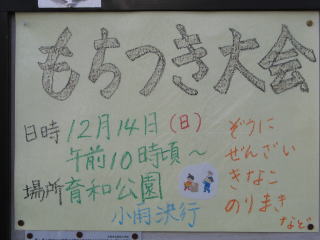 もちつき大会
日時 12月14日(日)
午前10時頃〜
場所 育和公園
小雨決行
ぞうに
ぜんざい
きなこ
のりまき
など